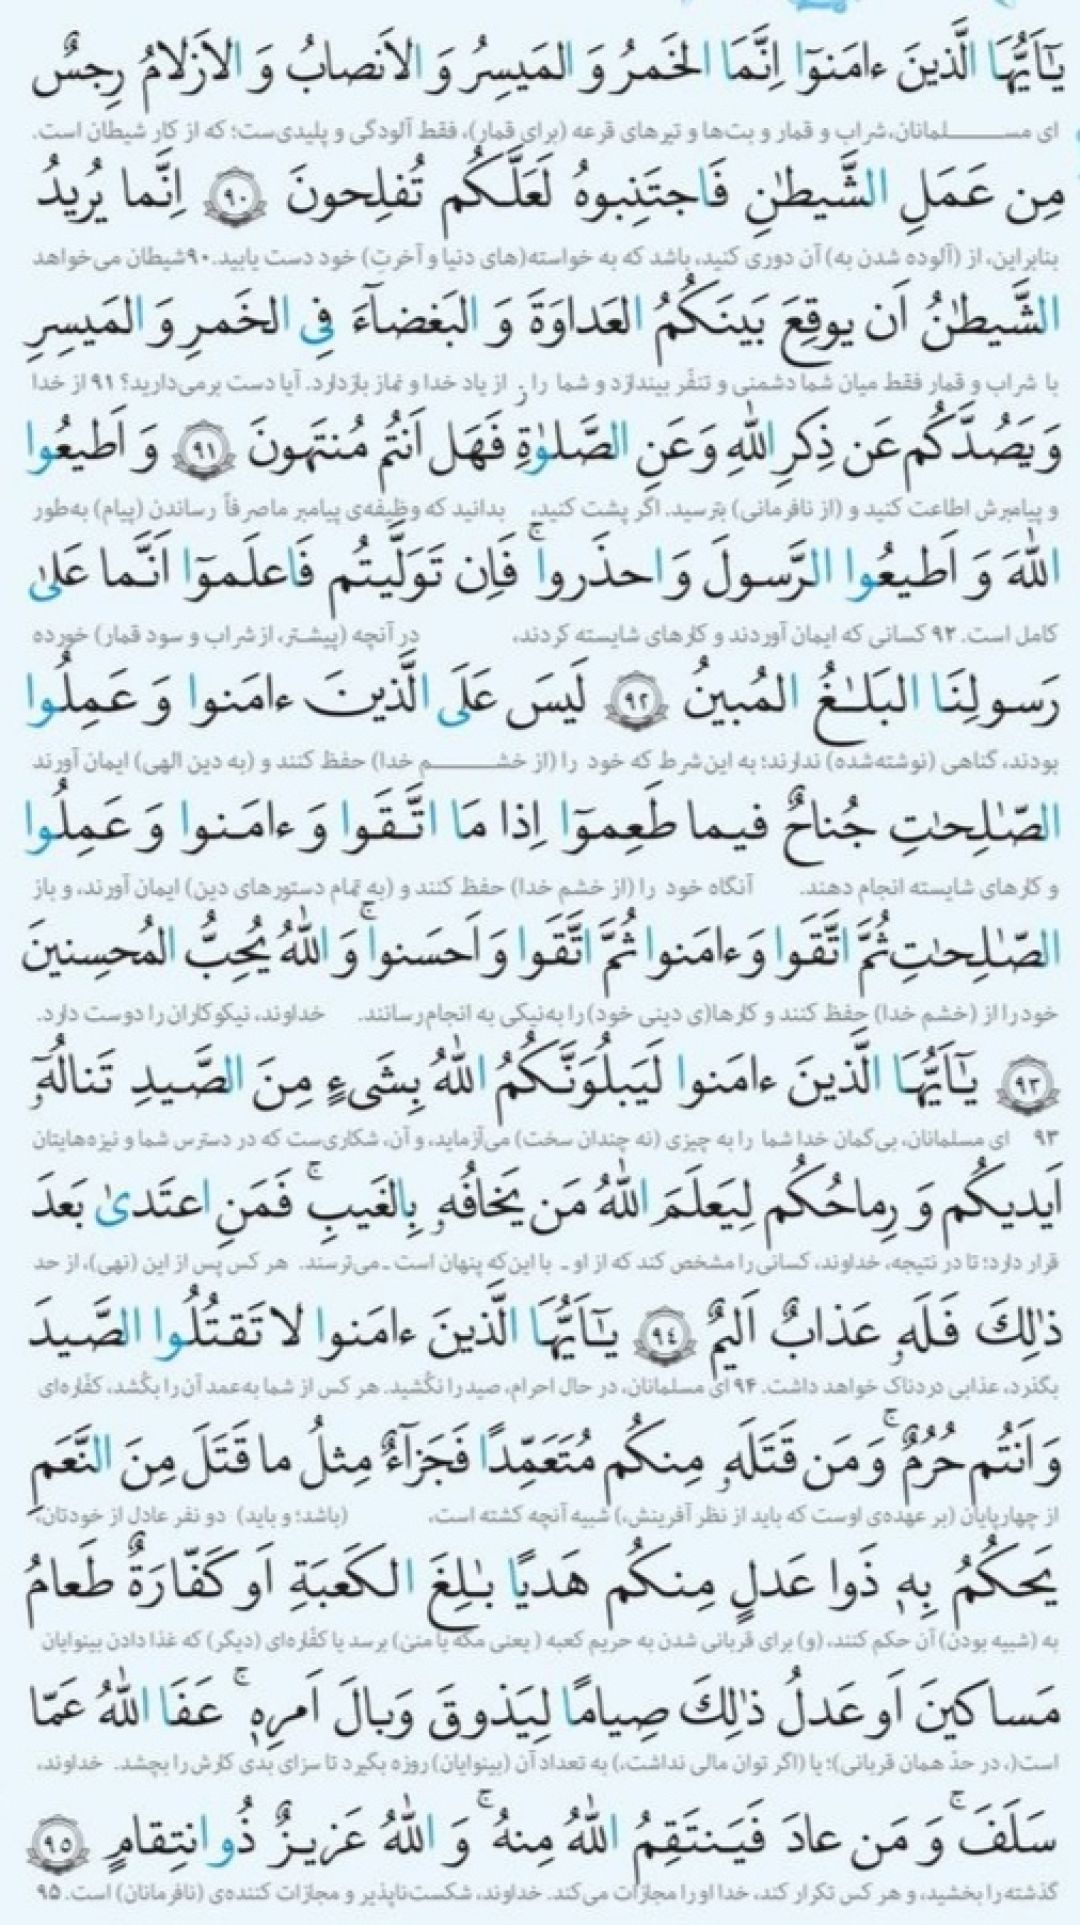 يٰٓاَيُّهَا الَّذينَ ءامَنوٓا اِنَّمَا الخَمرُ وَ المَيسِرُ وَ الاَنصابُ وَ الاَزلامُ رِجسٌ
ای مســـــلمانان، شراب و قمار و بت‌ها و تیرهای قرعه (برای قمار)، فقط آلودگی و پلیدی‌ست؛ که از کار شیطان است.
مِن عَمَلِ الشَّيطٰنِ فَاجتَنِبوهُ لَعَلَّكُم تُفلِحونَ ٩٠ اِنَّما يُريدُ
بنابراین، از (آلوده شدن به) آن دوری کنید، باشد که به خواسته(های دنیا و آخرتِ) خود دست یابید. ۹۰ شیطان می‌خواهد
الشَّيطٰنُ اَن يوقِعَ بَينَكُمُ العَداوَةَ وَ البَغضآءَ فِى الخَمرِ وَ المَيسِرِ
با شراب و قمار فقط میان شما دشمنی و تنفّر بیندازد و شما را از یاد خدا و نماز بازدارد. آیا دست برمی‌دارید؟ ۹۱ از خدا
وَ يَصُدَّكُم عَن ذِكرِ اللّٰهِ وَ عَنِ الصَّلوٰةِ فَهَل اَنتُم مُنتَهونَ ٩١ وَ اَطيعُوا
و پیامبرش اطاعت کنید و (از نافرمانی) بترسید. اگر پشت کنید، بدانید که وظیفه‌ی پیامبر ما صرفاً رساندن (پیام) به‌طور
اللّٰهَ وَ اَطيعُوا الرَّسولَ وَ احذَروا ۚ فَاِن تَوَلَّيتُم فَاعلَموٓا اَنَّما عَلىٰ
کامل است. ۹۲ کسانی که ایمان آوردند و کارهای شایسته کردند، در آنچه (پیشتر، از شراب و سود قمار) خورده
رَسولِنَا البَلٰغُ المُبينُ ٩٢ لَيسَ عَلَى الَّذينَ ءامَنوا وَ عَمِلُوا
بودند، گناهی (نوشته‌شده) ندارند؛ به این شرط که خود را (از خشـــــم خدا) حفظ کنند و (به دین الهی) ایمان آورند
الصّٰلِحٰتِ جُناحٌ فيما طَعِموٓا اِذا مَا اتَّقَوا وَ ءامَنوا وَ عَمِلُوا
و کارهای شایسته انجام دهند. آنگاه خود را (از خشم خدا) حفظ کنند و (به تمام دستورهای دین) ایمان آورند، و باز
الصّٰلِحٰتِ ثُمَّ اتَّقَوا وَ ءامَنوا ثُمَّ اتَّقَوا وَ اَحسَنوا ۚ وَ اللّٰهُ يُحِبُّ المُحسِنينَ
خود را از (خشم خدا) حفظ کنند و کارها(ی دینی خود) را به‌نیکی به انجام رسانند. خداوند، نیکوکاران را دوست دارد.
٩٣ يٰٓاَيُّهَا الَّذينَ ءامَنوا لَيَبلُوَنَّكُمُ اللّٰهُ بِشَىءٍ مِنَ الصَّيدِ تَنالُهُٓ
۹۳ ای مسلمانان، بی‌گمان خدا شما را به چیزی (نه چندان سخت) می‌آزماید، و آن، شکاری‌ست که در دسترس شما و نیزه‌هایتان
اَيديكُم وَ رِماحُكُم لِيَعلَمَ اللّٰهُ مَن يَخافُهٗ بِالغَيبِ ۚ فَمَنِ اعتَدىٰ بَعدَ
قرار دارد؛ تا در نتیجه، خداوند، کسانی را مشخص کند که از او ـ با این‌که پنهان است ـ می‌ترسند. هر کس پس از این (نهی)، از حد
ذٰلِكَ فَلَهٗ عَذابٌ اَليمٌ ٩٤ يٰٓاَيُّهَا الَّذينَ ءامَنوا لا تَقتُلُوا الصَّيدَ
بگذرد، عذابی دردناک خواهد داشت. ۹۴ ای مسلمانان، در حال احرام، صید را نکُشید. هر کس از شما به‌عمد آن را بکُشد، کفّاره‌ای
وَ اَنتُم حُرُمٌ ۚ وَ مَن قَتَلَهٗ مِنكُم مُتَعَمِّدًا فَجَزآءٌ مِثلُ ما قَتَلَ مِنَ النَّعَمِ
از چهارپایان (بر عهده‌ی اوست که باید از نظر آفرینش،) شبیه آنچه کشته است، (باشد؛ و باید) دو نفر عادل از خودتان،
يَحكُمُ بِهٖ ذَوا عَدلٍ مِنكُم هَديًا بٰلِغَ الكَعبَةِ اَو كَفّارَةٌ طَعامُ
به (شبیه بودن) آن حکم کنند، (و) برای قربانی شدن به حریم کعبه (یعنی مکه یا منیٰ) برسد یا کفّاره‌ای (دیگر) که غذا دادن بینوایان
مَساكينَ اَو عَدلُ ذٰلِكَ صِيامًا لِيَذوقَ وَبالَ اَمرِهٖ ۚ عَفَا اللّٰهُ عَمّا
است(، در حدّ همان قربانی)؛ یا (اگر توان مالی نداشت،) به تعداد آن (بینوایان) روزه بگیرد تا سزای بدی کارش را بچشد. خداوند،
سَلَفَ ۚ وَ مَن عادَ فَيَنتَقِمُ اللّٰهُ مِنهُ ۚ وَ اللّٰهُ عَزيزٌ ذُو انتِقامٍ ٩٥
گذشته را بخشید، و هر کس تکرار کند، خدا او را مجازات می‌کند. خداوند، شکست‌ناپذیر و مجازات کننده‌ی (نافرمانان) است. ۹۵